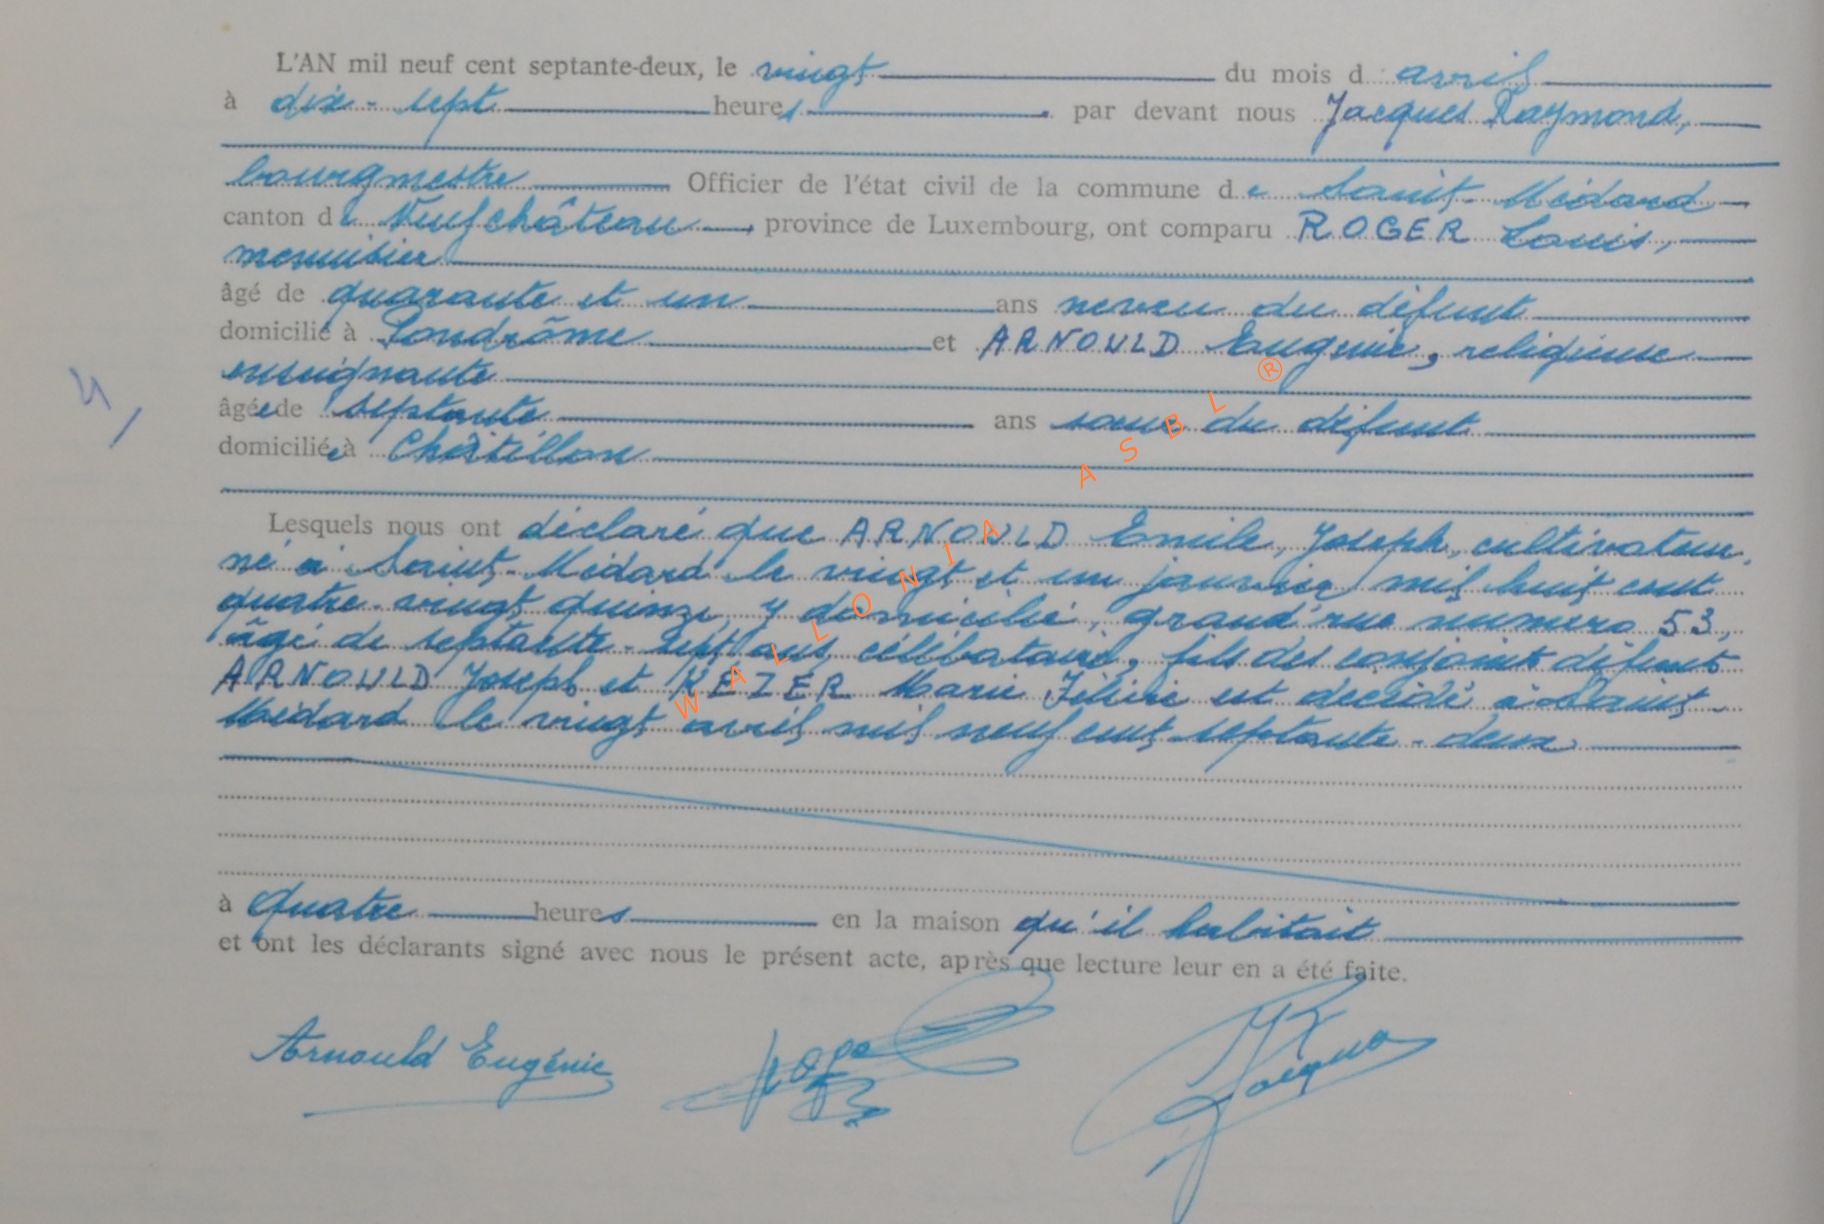 L'AN mil neuf cent septante-deux, le vingt du mois d avril
à dix-sept heures par devant nous Jacques Raymond,
bourgmestre Officier de l'état civil de la commune de Saint-Médard
canton de Neufchâteau, province de Luxembourg, ont comparu ROGER Louis,
menuisier
âgé de quarante et un ans neveu du défunt
domicilié à Pondrôme et ARNOULD Eugénie, religieuse
enseignante
âgée de septante ans soeur du défunt
domiciliée à Châtillon
Lesquels nous ont déclaré que ARNOULD Emile, Joseph, cultivateur,
né à Saint-Médard le vingt et un janvier mil huit cent
quatre-vingt quinze, y domicilié, grand'rue numéro 53,
âgé de septante-sept ans, célibataire, fils des conjoints défunts
ARNOULD Joseph et KEZER Marie Félicie est décédé à Saint-
Médard le vingt avril mil neuf cent septante-deux
à quatre heures en la maison qu'il habitait
et ont les déclarants signé avec nous le présent acte, après que lecture leur en a été faite.
Arnould Eugénie
Jacques
WALLONIA ASBL ®